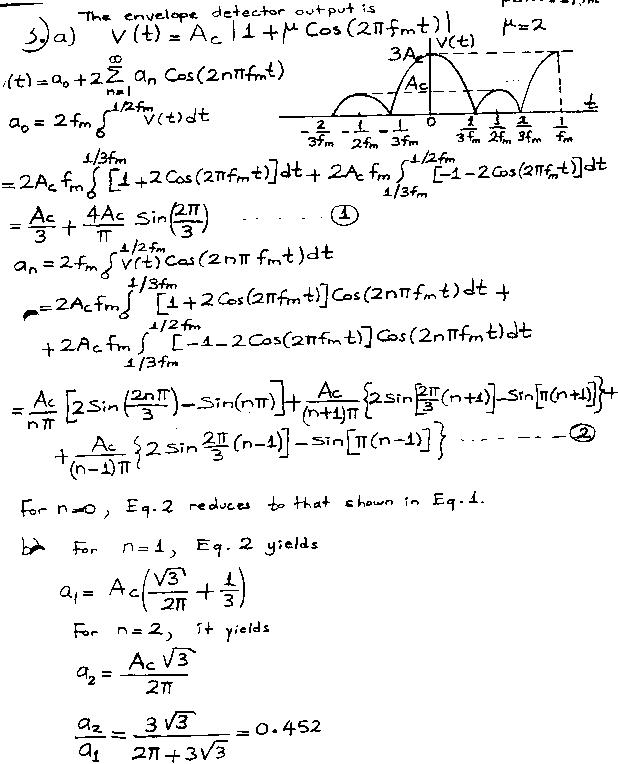 The envelope detector output is
3.a) V(t) = Ac |1 + μ Cos(2πfmt)| μ=2
V(t)
3Ac
Ac
-2/3fm -1/2fm -1/3fm 0 1/3fm 1/2fm 2/3fm 1/fm t
(t) = a₀ + 2 ∞Σn=1 an Cos(2nπfmt)
a₀ = 2fm ∫₀^1/2fm V(t)dt
= 2Ac fm ∫₀^1/3fm [1+2Cos(2πfmt)]dt + 2Ac fm ∫1/3fm^1/2fm [-1-2Cos(2πfmt)]dt
= Ac/3 + 4Ac/π Sin(2π/3) ...... ①
an = 2fm ∫₀^1/2fm V(t)Cos(2nπfmt)dt
= 2Acfm ∫₀^1/3fm [1+2Cos(2πfmt)]Cos(2nπfmt)dt +
+ 2Acfm ∫1/3fm^1/2fm [-1-2Cos(2πfmt)]Cos(2nπfmt)dt
= Ac/nπ [2Sin(2nπ/3) - Sin(nπ)] + Ac/(n+1)π {2Sin[2π/3(n+1)] - Sin[π(n+1)]} +
+ Ac/(n-1)π {2Sin 2π/3(n-1)] - Sin[π(n-1)]} ....... ②
For n=0, Eq.2 reduces to that shown in Eq.1.
b) For n=1, Eq.2 yields
a₁ = Ac(√3/2π + 1/3)
For n=2, it yields
a₂ = Ac√3/2π
a₂/a₁ = 3√3/2π+3√3 = 0.452